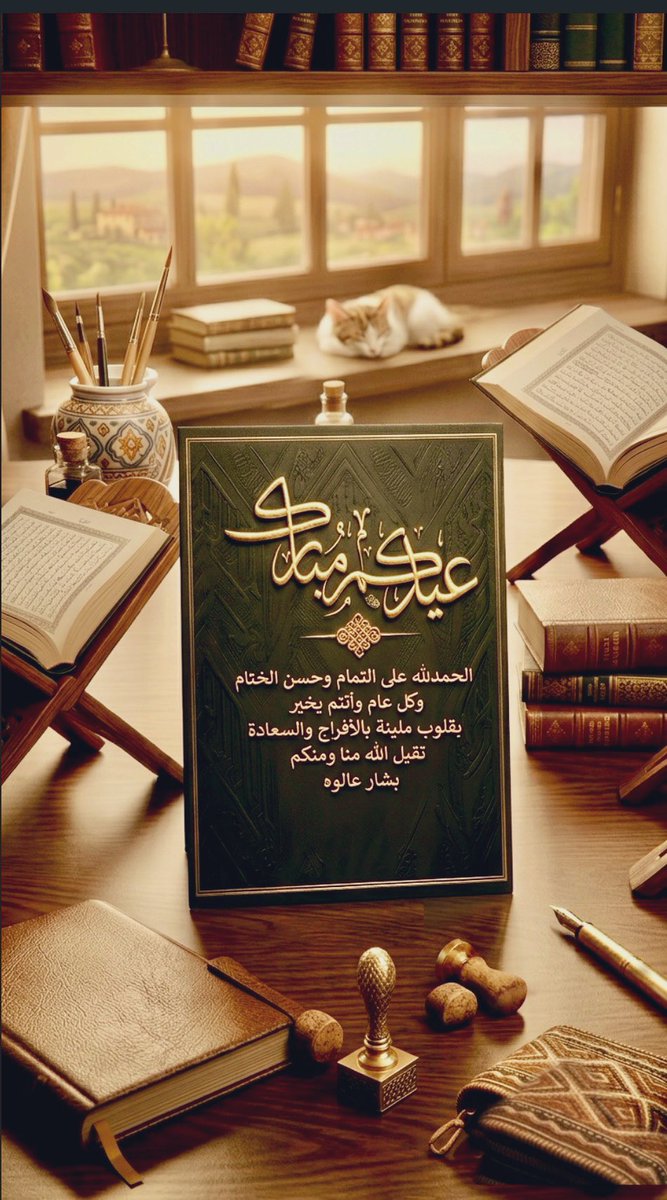 عيدكم مبارك
الحمدلله على التمام وحسن الختام
وكل عام وأنتم يخير
بقلوب مليئة بالأفراح والسعادة
تقيل الله منا ومنكم
بشار عالوه